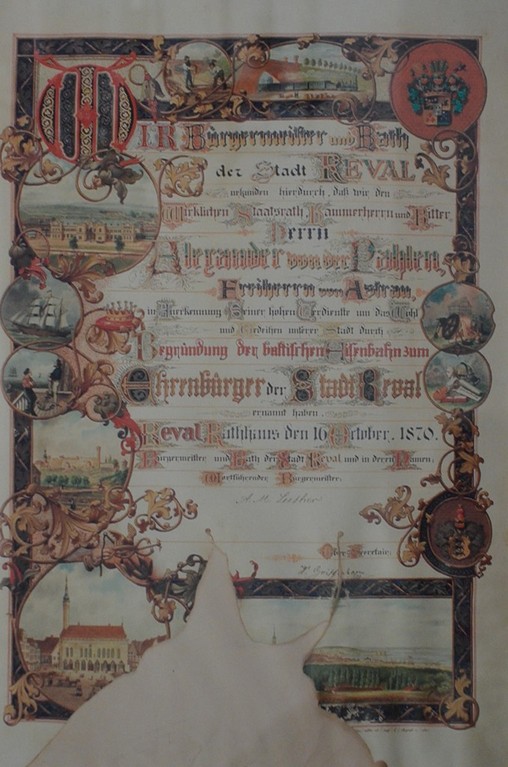 WIR Bürgermeister und Rath
der Stadt REVAL
urkunden hierdurch, daß wir den
Wirklichen Staatsrath, Kammerherrn und Ritter,
Herrn
Alexander von der Pahlen,
Freiherrn von Astrau,
in Anerkennung Seiner hohen Verdienste um das Wohl
und Gedeihen unserer Stadt durch
Begründung der baltischen Eisenbahn zum
Ehrenbürger der Stadt Reval
ernannt haben.
Reval Rathhaus den 16 October. 1870.
Bürgermeister und Rath der Stadt Reval und in deren Namen:
Wortführender Bürgermeister.
Ober-Secretair: